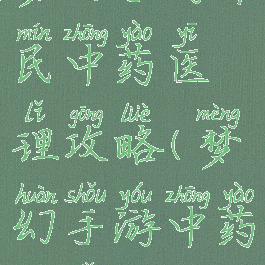 mín zhōng yào yī
民中药医
lǐ gōng lüè mèng
理攻略(梦
huàn shǒu yóu zhōng yào
幻手游中药